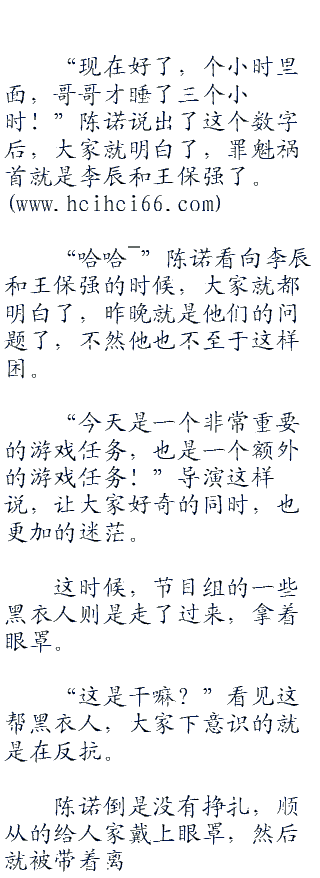 “现在好了，个小时里
面，哥哥才睡了三个小
时！”陈诺说出了这个数字
后，大家就明白了，罪魁祸
首就是李辰和王保强了。
(www.hcihci66.com)
“哈哈¯”陈诺看向李辰
和王保强的时候，大家就都
明白了，昨晚就是他们的问
题了，不然他也不至于这样
困。
“今天是一个非常重要
的游戏任务，也是一个额外
的游戏任务！”导演这样
说，让大家好奇的同时，也
更加的迷茫。
这时候，节目组的一些
黑衣人则是走了过来，拿着
眼罩。
“这是干嘛？”看见这
帮黑衣人，大家下意识的就
是在反抗。
陈诺倒是没有挣扎，顺
从的给人家戴上眼罩，然后
就被带着离